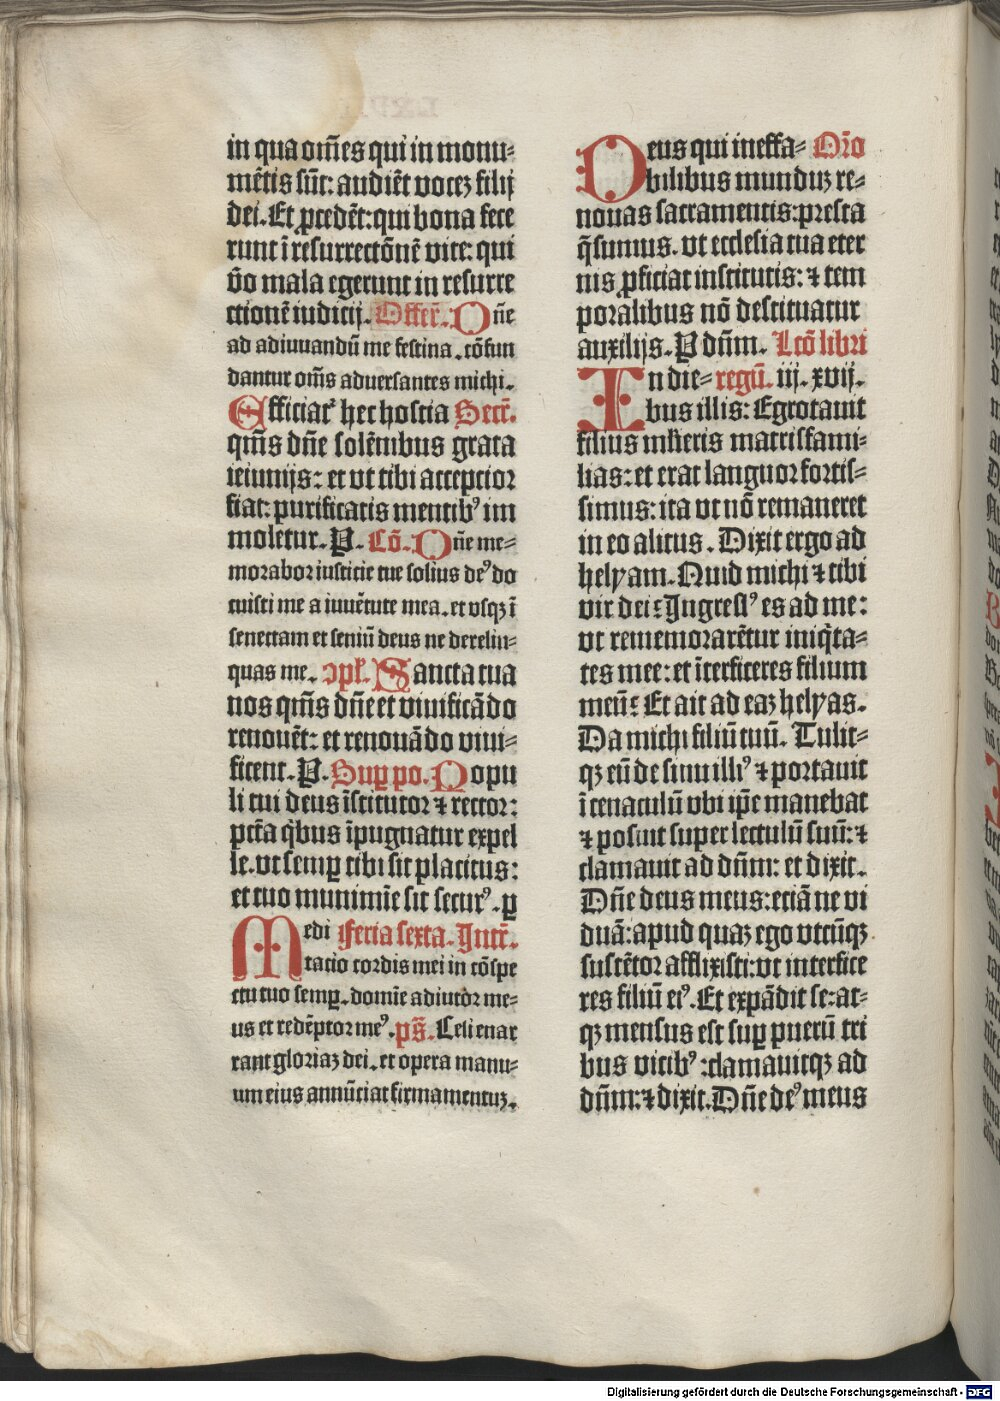 in qua om̄es qui in monu⸗
mētis sūt: audiēt vocez filij
dei. Et ꝓcedēt: qui bona fece
runt ī resurrectōnē vite: qui
v̄o mala egerunt in resurre
ctionē iudicij. Offer̄. Dn̄e
ad adiuuandū me festina. cōfun
dantur om̄s aduersantes michi.
Efficiat᷑ hec hostia Secr̄.
qm̄s dn̄e solēnibus grata
ieiunijs: et vt tibi acceptior
fiat: purificatis mentibꝰ im
moletur. P. Cō. Dn̄e me⸗
morabor iusticie tue solius deꝰ do
cuisti me a iuuētute mea. et vsqꝫ ī
senectam et seniū deus ne derelin⸗
quas me. ꝯpl̄. Sancta tua
nos qm̄s dn̄e et viuificādo
renouēt: et renouādo viui⸗
ficent. P. Sup po. Popu
li tui deus īstitutor ⁊ rector:
pctā q̇bus īpugnatur expel
le. vt semꝑ tibi sit placitus:
et tuo munimīe sit securꝰ. ꝑ
Medi Feria sexta. Intr̄.
tacio cordis mei in cōspe
ctu tuo semꝑ. domīe adiutor me⸗
us et redēptor meꝰ. ps̄. Celi enar
rant gloriaꝫ dei. et opera manu⸗
um eius annūciat firmamentuꝫ.
Deus qui ineffa⸗ Or̄o
bilibus munduꝫ re⸗
nouas sacramentis: presta
q̄sumus. vt ecclesia tua eter
nis ꝓficiat institutis: ⁊ tem
poralibus nō destituatur
auxilijs. P dn̄m. Lcō libri
In die⸗ regū. iij. xvij.
bus illis: Egrotauit
filius mlieris matrisfami⸗
lias: et erat languor fortis⸗
simus: ita vt nō remaneret
in eo alitus. Dixit ergo ad
helyam. Quid michi ⁊ tibi
vir dei: Ingressꝰ es ad me:
vt rememorarētur iniq̇ta⸗
tes mee: et īterficeres filium
meū: Et ait ad eaꝫ helyas.
Da michi filiū tuū. Tulit⸗
qꝫ eū de sinu illiꝰ ⁊ portauit
ī cenaculū vbi ip̄e manebat
⁊ posuit super lectulū suū: ⁊
clamauit ad dn̄m: et dixit.
Dn̄e deus meus: eciā ne vi
duā: apud quaꝫ ego vtcūqꝫ
sustētor afflixisti: vt interfice
res filiū eiꝰ. Et expādit se: at⸗
qꝫ mensus est suꝑ puerū tri
bus vicibꝰ: clamauitqꝫ ad
dn̄m: ⁊ dixit. Dn̄e deꝰ meus
Digitalisierung gefördert durch die Deutsche Forschungsgemeinschaft - DFG